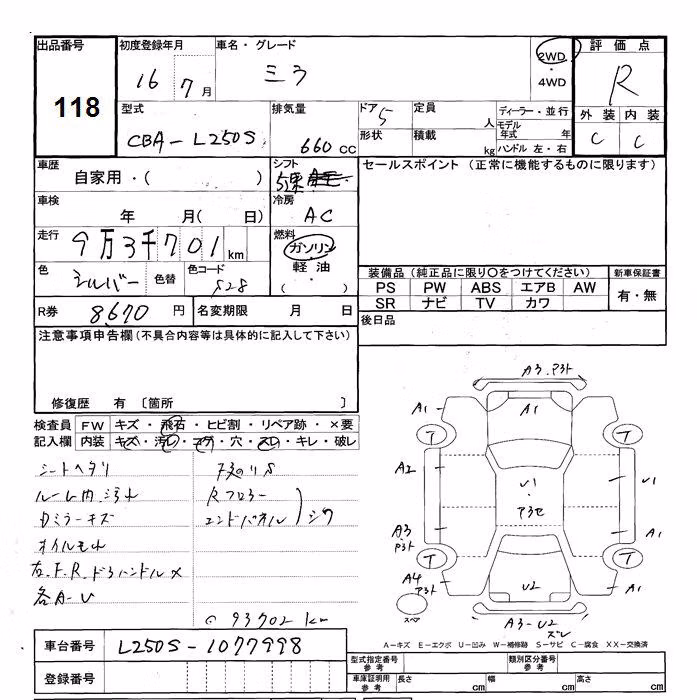 出品番号 初度登録年月 車名・グレード 2WD・4WD 評価点
118 16 7月 ミラ R
型式 排気量 ドア 5 定員 人 ディーラー・並行 外装 内装
CBA-L250S 660cc 形状 積載 kg モデル年式 年 C C
ハンドル 左・右
車歴 シフト セールスポイント (正常に機能するものに限ります)
自家用・( )
車検 冷房
年 月( 日) AC
走行 燃料
9万3千701km ガソリン
色 シルバー 色替 色コード S28 軽油
( )
装備品 (純正品に限り○をつけてください) 新車保証書
PS PW ABS エアB AW 有・無
SR ナビ TV カワ
R券 8670円 名変期限 月 日 後日品
注意事項申告欄(不具合内容等は具体的に記入して下さい)
修復歴 有 〔箇所 〕
検査員 FW キズ・飛石・ヒビ割・リペア跡・×要
記入欄 内装 キズ・汚レ・コゲ・穴・スレ・キレ・破レ
シートヘタリ
ルーム内汚れ Rフロアー
Dミラーキズ エンドパネル シワ
オイルもれ
右.F.R.ドアハンドル×
各A-U
93702km
A3.アヨト
A1 A1
T T
A2 U1 U1
アヨセ
A3 アヨト A1
T T
A4 アヨト U2 A1
スペア A3-U2 ズレ
A-キズ E-エクボ U-凹み W-補修跡 S-サビ C-腐食 XX-交換済
車台番号 L250S-1077998
型式指定番号 参考 類別区分番号 参考
登録番号
車庫証明用 参考 長さ cm 幅 cm 高さ cm